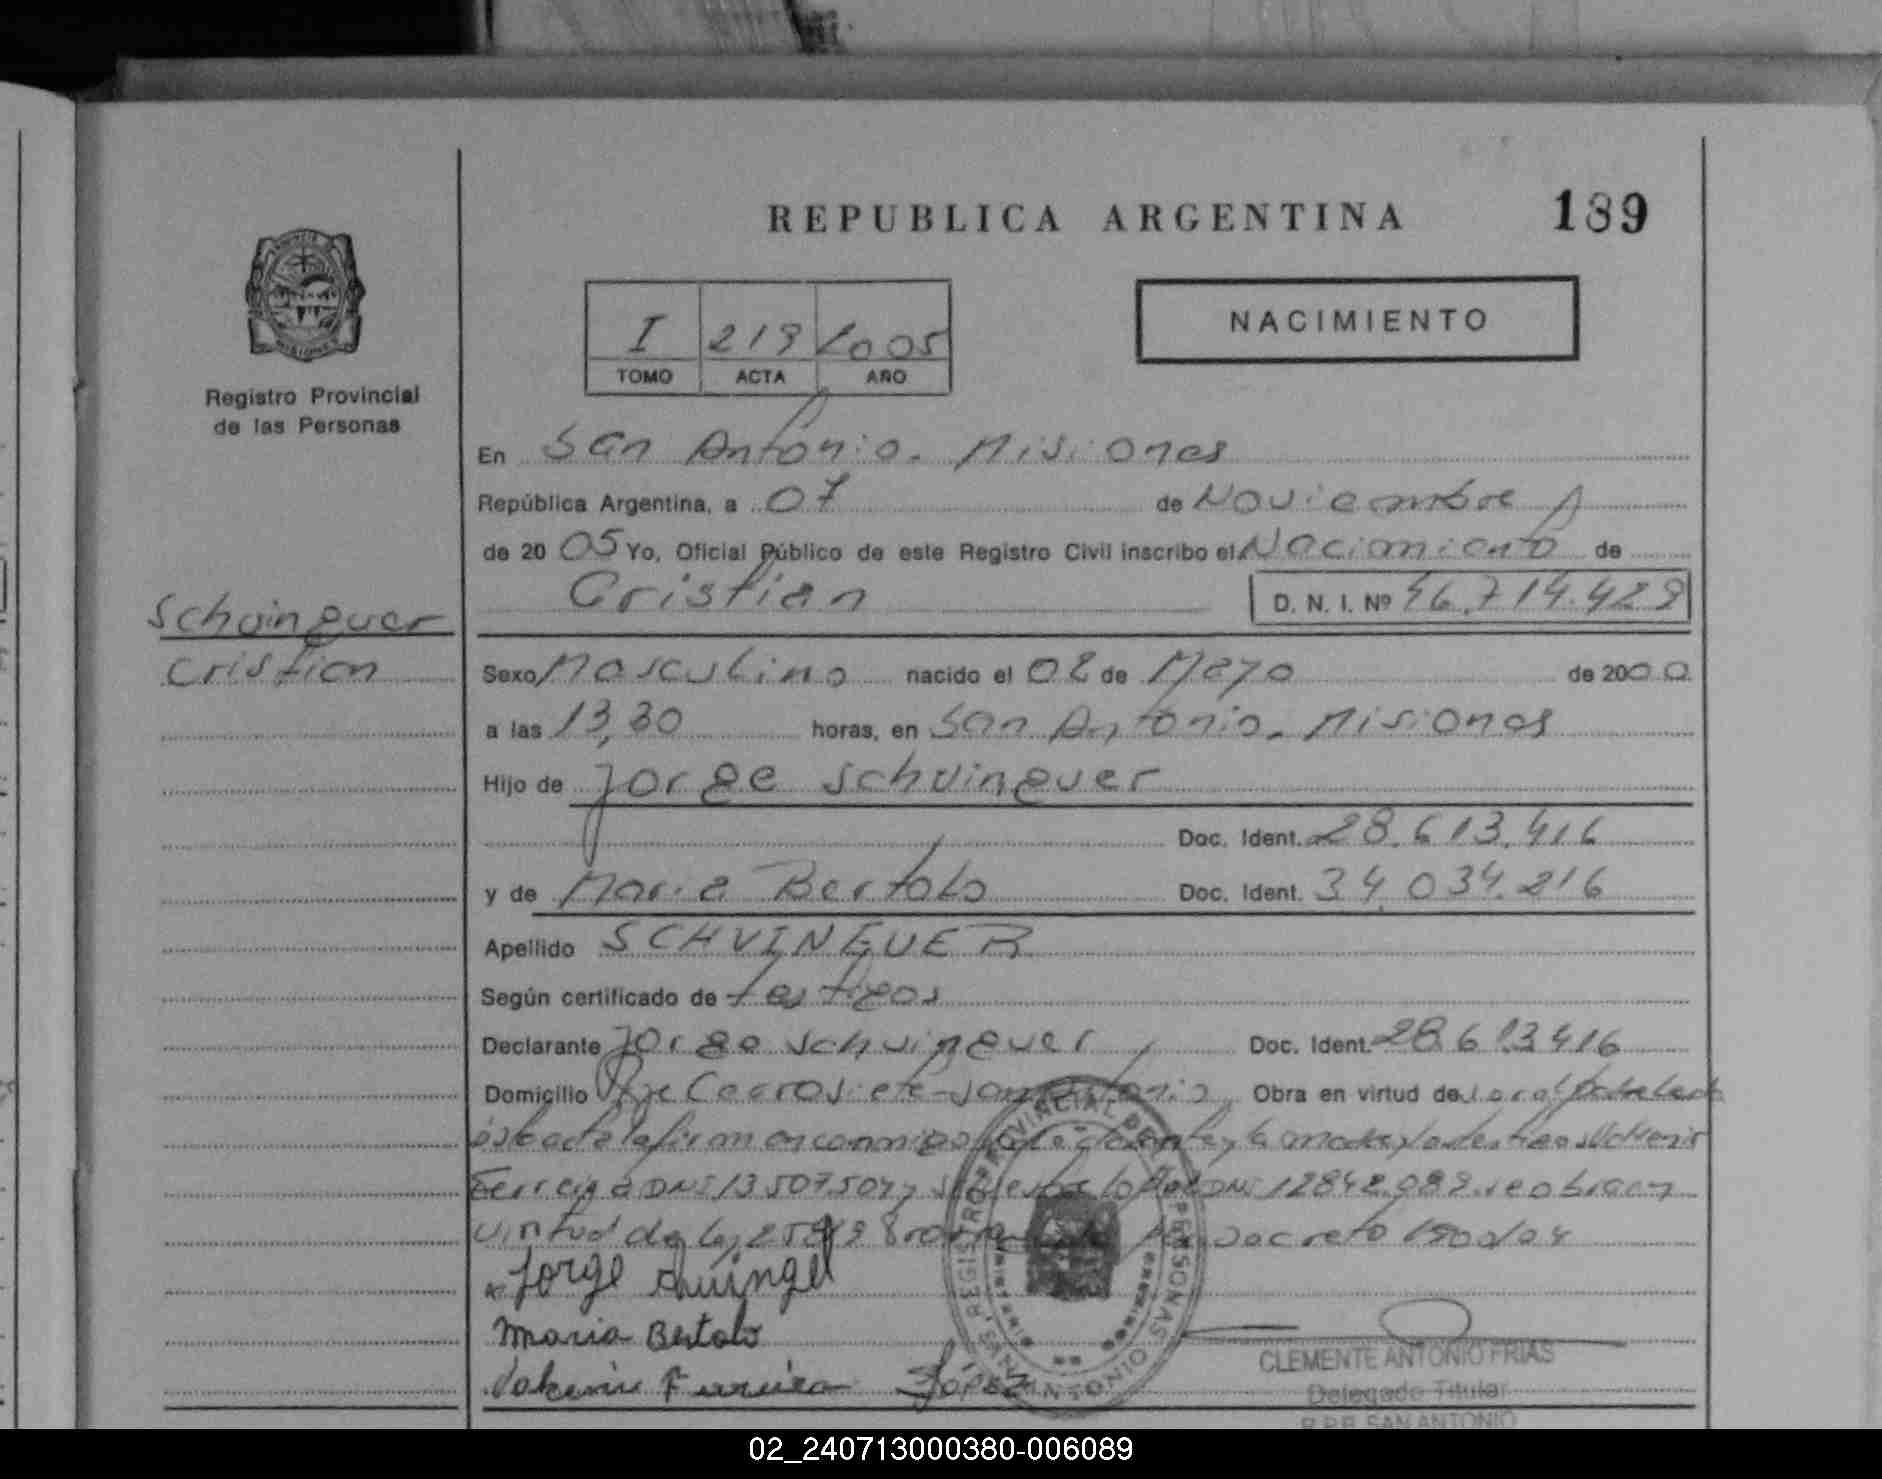 REPUBLICA ARGENTINA
189
I 219 2005
TOMO ACTA AÑO
NACIMIENTO
Registro Provincial
de las Personas
En San Antonio. Misiones
República Argentina, a 07 de Noviembre
de 20 05 Yo, Oficial Público de este Registro Civil inscribo el Nacimiento de
Cristian D. N. I. Nº 46.714.429
Schvinguer
Cristian
Sexo Masculino nacido el 02 de Mayo de 2000
a las 13,30 horas, en San Antonio. Misiones
Hijo de Jorge Schvinguer
Doc. Ident. 28.613.416
y de Maria Bertolo Doc. Ident. 34.034.216
Apellido SCHVINGUER
Según certificado de testigos
Declarante Jorge Schvinguer Doc. Ident. 28.613416
Domicilio Cerro Siete - San Antonio Obra en virtud de
esta acta la firman conmigo y la madre y los testigos
Ferreira DNI 13507504 y DNI 12842.089. se obra en
virtud de ley 25819 Decreto 1900/04
Jorge
Maria Bertolo
Ferreira López
REGISTRO PROVINCIAL DE LAS PERSONAS
SAN ANTONIO
CLEMENTE ANTONIO FRIAS
Delegado Titular
R.P.P. SAN ANTONIO
02_240713000380-006089